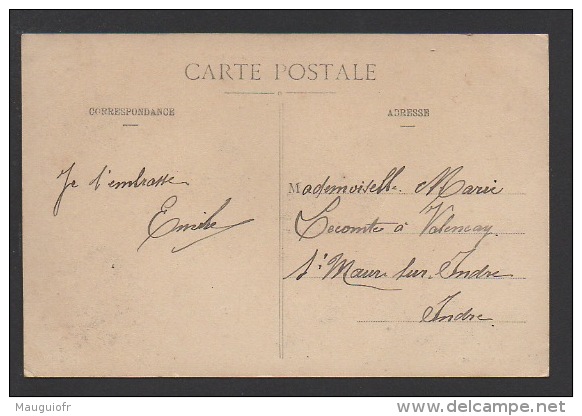 CARTE POSTALE
CORRESPONDANCE
ADRESSE
Je t'embrasse
Emile
Mademoiselle Marie
Lecomte à Valençay
St Maur sur Indre
Indre
Mauguiofr
www.delcampe.net